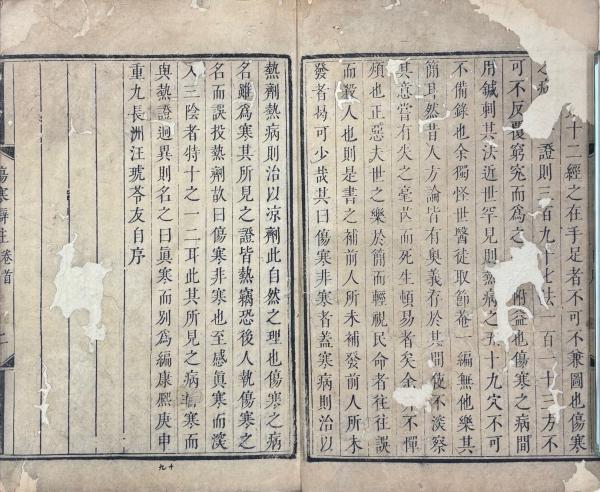 十二經之在手足者不可不兼圖也傷寒
之病 證則三百九十七法一百一十三方不
可不反覆窮究而爲之 附益也傷寒之病間
用鍼刺其决近世罕見則熱病之五十九穴不可
不備錄也余獨怪世醫徒取節菴一編無他樂其
簡耳然昔人方論皆有奧義存於其間使不深察
其意嘗有失之毫芒而死生頓易者矣余 不憚
煩也正惡夫世之樂於簡而輕視民命者往往誤
而殺人也則是書之補前人所未補發前人所未
發者曷可少哉其曰傷寒非寒者蓋寒病則治以
熱劑熱病則治以凉劑此自然之理也傷寒之病
名雖爲寒其所見之證皆熱竊恐後人執傷寒之
名而誤投熱劑故曰傷寒非寒也至感眞寒而深
入三陰者特十之一二耳此其所見之病 寒而
與熱證迥異則名之曰眞寒而別爲編康熙庚申
重九長洲汪琥苓友自序
傷寒辯註 卷首
十九